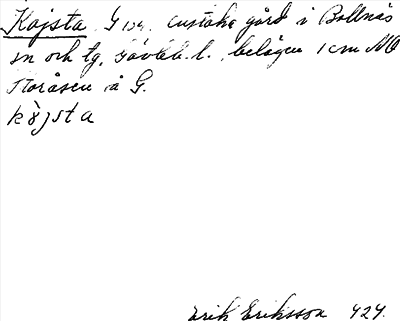 Kojsta G sr. enstaka gård i Bollnäs
sn och tg, Gävleb. l., belägen 1 cm NO
Storåsen å G.
kòjsta
Erik Eriksson 424.